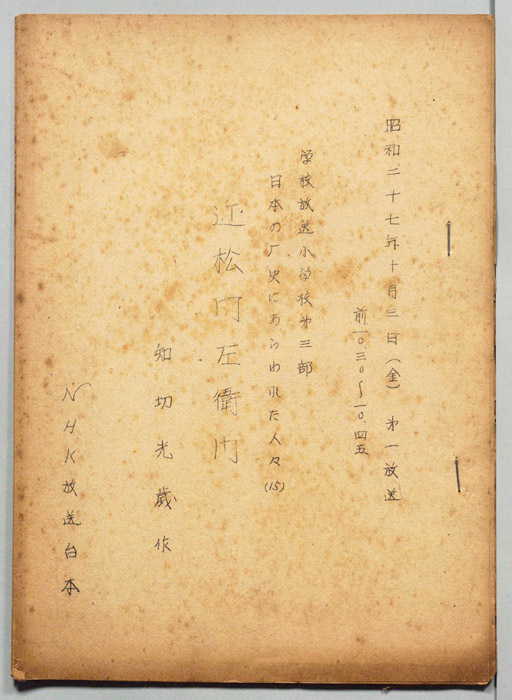 昭和二十七年十月三日(金) 第一放送
前一〇.三〇~一〇.四五
学校放送小学校第三部
日本の厂史にあらわれた人々(15)
近松门左衛门
知切光歳作
NHK放送台本